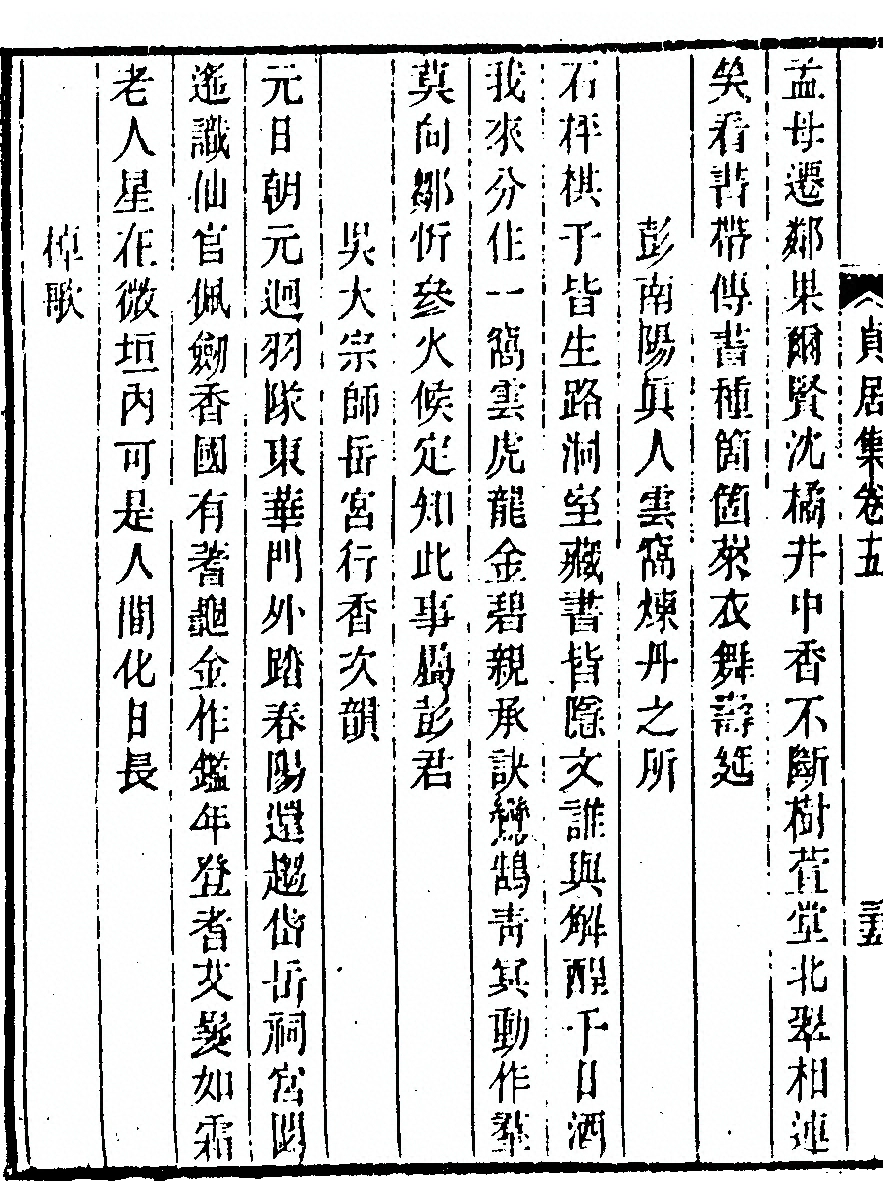 貞居集卷五
孟母遷鄰果爾賢沈橘井中香不斷樹萱堂北翠相連
矣看書帶傳書種箇箇萊衣舞壽延
彭南陽眞人雲窩煉丹之所
石枰棋子皆生路洞室藏書皆隱文誰與解酲千日酒
我來分住一窩雲虎龍金碧親承訣鸞鵠靑冥動作羣
莫向鄒忻參火候定知此事屬彭君
吳大宗師岳宮行香次韻
元日朝元迴羽隊東華門外踏春陽還趨岱岳祠宮閟
遙識仙官佩劒香國有蓍龜金作鑑年登耆艾髮如霜
老人星在微垣內可是人間化日長
棹歌